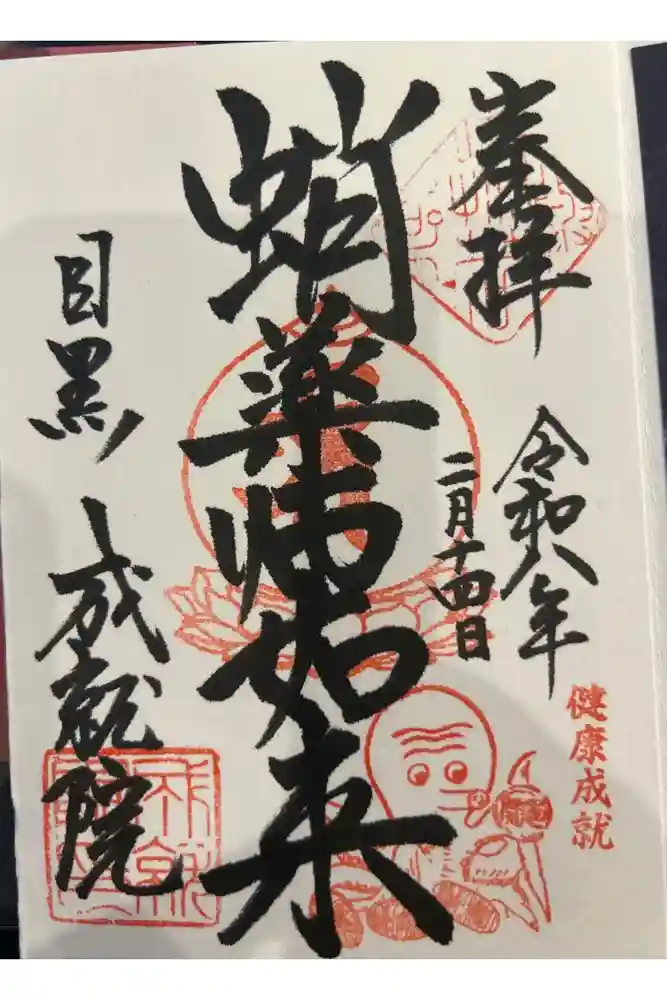 奉拝
令和八年
二月十四日
健康成就
蛸薬師如来
目黒 成就院